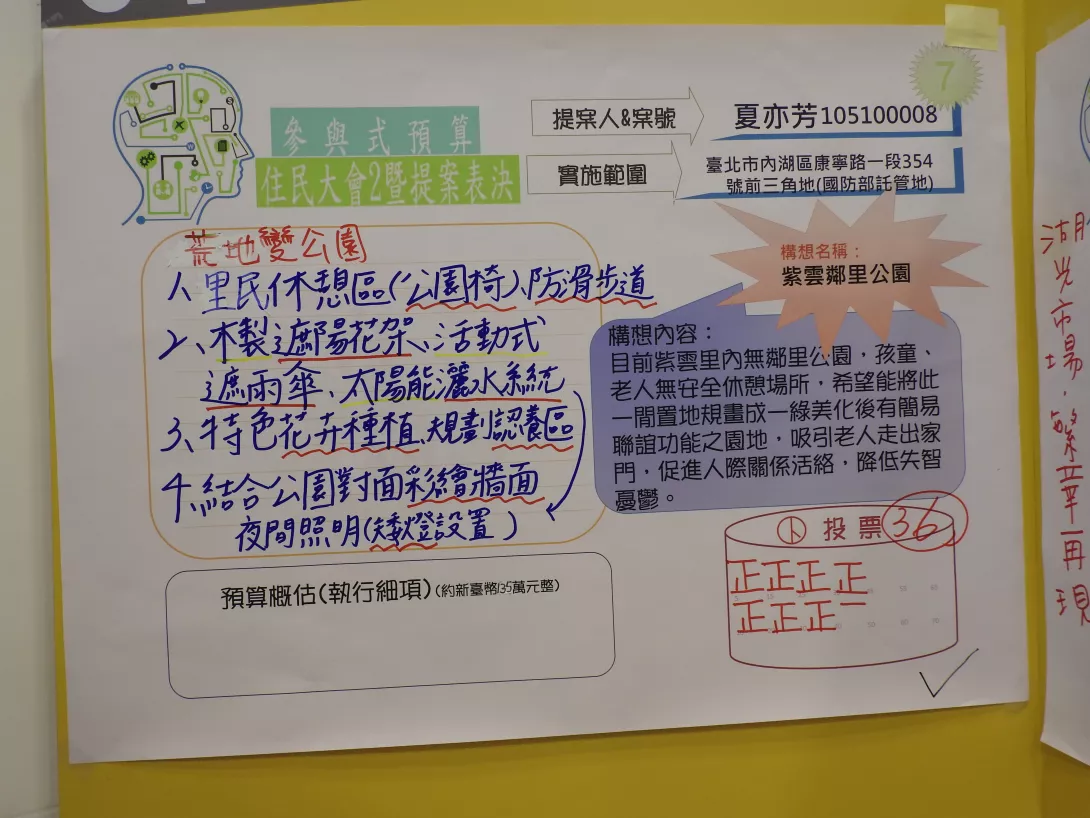 7
參與式預算
住民大會2暨提案表決
提案人&案號
夏亦芳105100008
實施範圍
臺北市內湖區康寧路一段354
號前三角地(國防部託管地)
荒地變公園
1、里民休憩區(公園椅)、防滑步道
2、木製遮陽花架、活動式
遮雨傘、太陽能灑水系統
3、特色花卉種植、規劃認養區
4、結合公園對面彩繪牆面
夜間照明(矮燈設置)
構想名稱：
紫雲鄰里公園
構想內容：
目前紫雲里內無鄰里公園，孩童、
老人無安全休憩場所，希望能將此
一閒置地規畫成一綠美化後有簡易
聯誼功能之園地，吸引老人走出家
門，促進人際關係活絡，降低失智
憂鬱。
預算概估(執行細項)(約新臺幣135萬元整)
投票 36
正正正正
正正正一
湖光市場．繁華再現